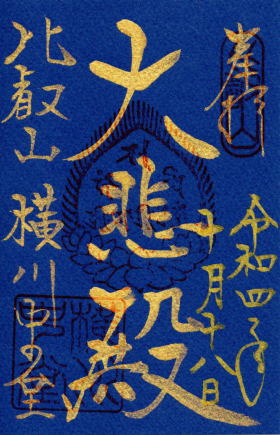 奉拝
令和四年
十月十八日
大悲殿
比叡山
横川中堂